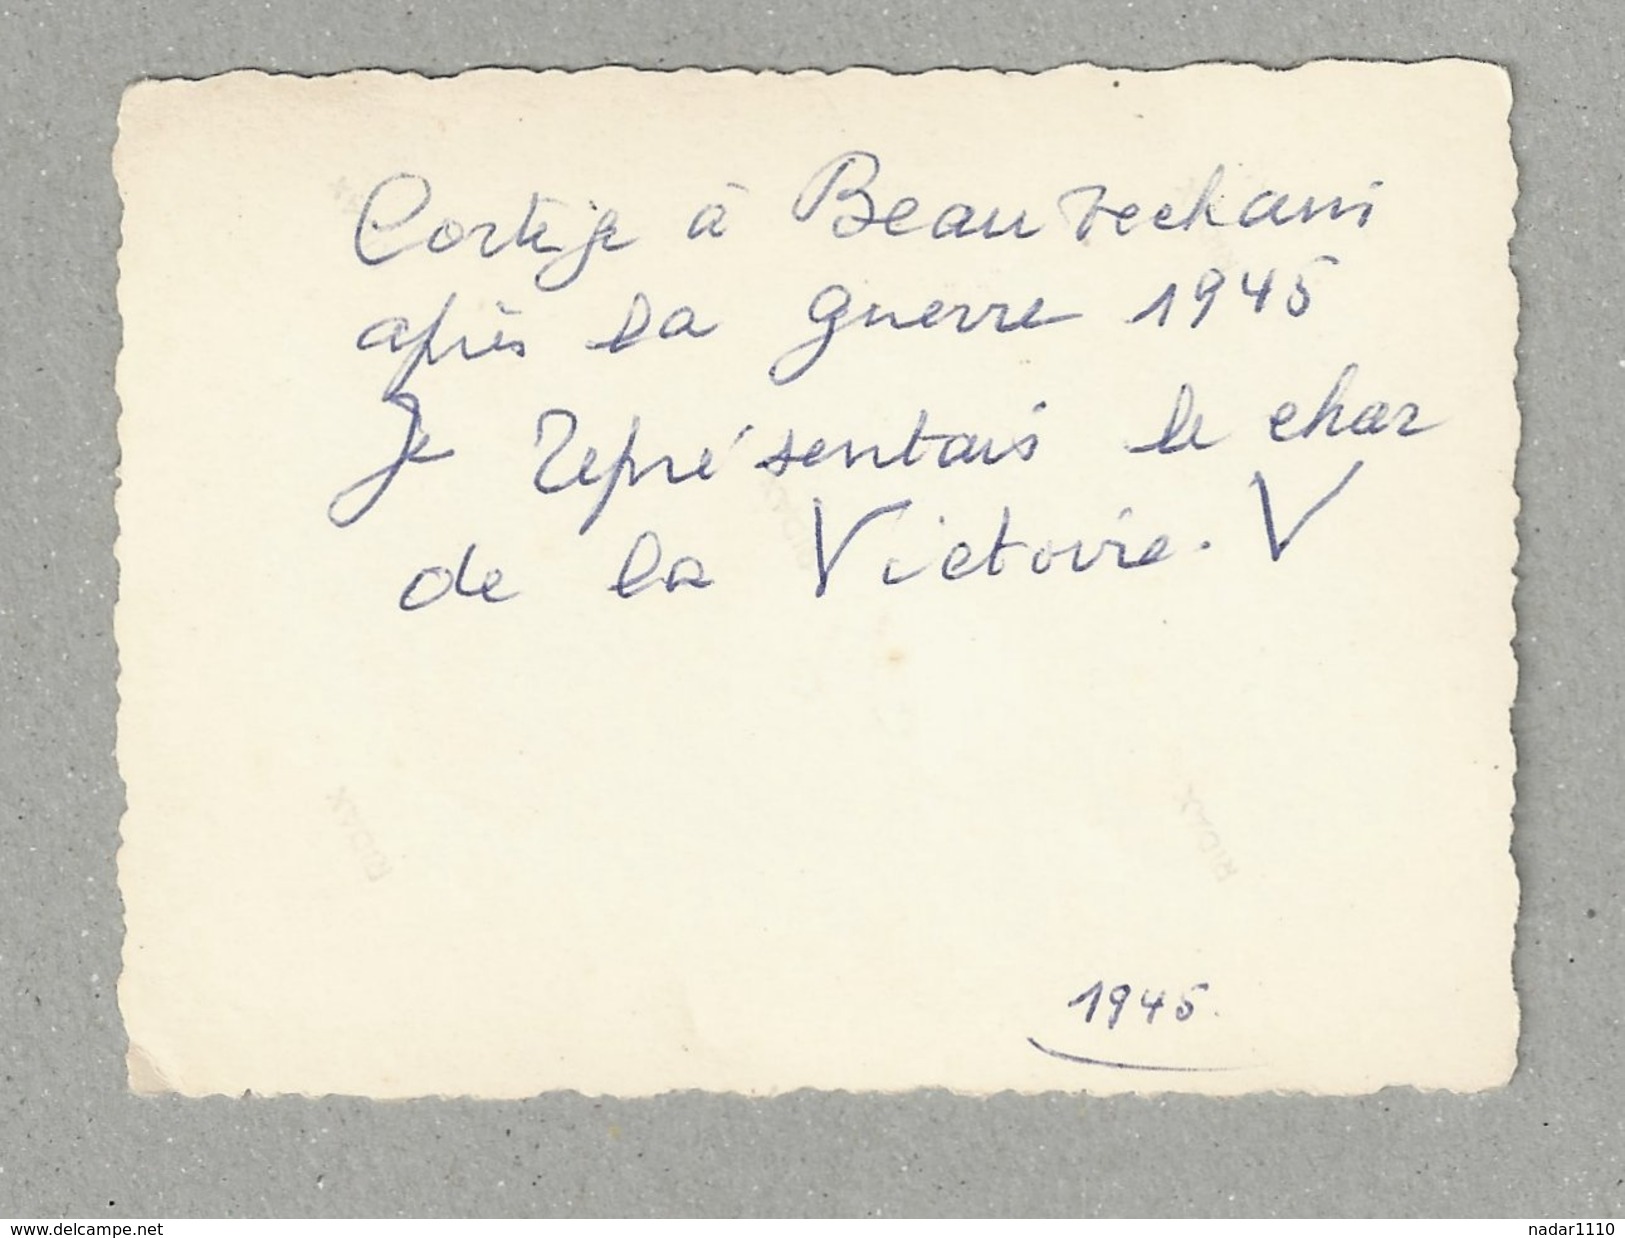 Cortège à Beauvechain
après la guerre 1945
Je représentais le char
de la Victoire. V
RIDAX
RIDAX
RIDAX
1945.
www.delcampe.net
nadar1110